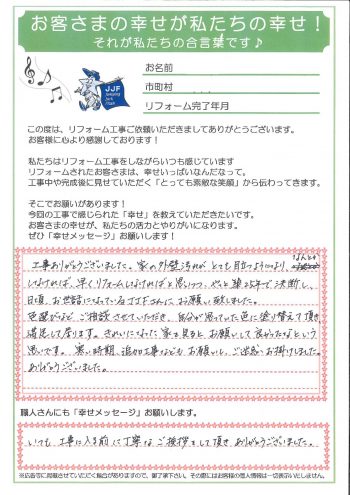 お客さまの幸せが私たちの幸せ！
それが私たちの合言葉です♪
JJF
お名前
市町村
リフォーム完了年月
この度は、リフォーム工事ご依頼いただきましてありがとうございます。
お客様に心より感謝しております！
私たちはリフォーム工事をしながらいつも感じています
リフォームされたお客さまは、幸せいっぱいなんだなって。
工事中や完成後に見せていただく「とっても素敵な笑顔」から伝わってきます。
そこでお願いがあります！
今回の工事で感じられた「幸せ」を教えていただきたいです。
お客さまの幸せが、私たちの活力とやりがいになります。
ぜひ「幸せメッセージ」お願いします！
なんとか
工事ありがとうございました。家の外壁汚れがとても目立つようになり
しなければ、早くリフォームしなければと思いつつ、やっと築25年で決断し、
日頃、お世話になっているJJFさんにお願い致しました。
色選びなどご相談させていただき、自分が思っていた色に塗り替えて頂き
満足して居ります。きれいになった家を見ると、お願いして良かったなという
思いです。寒い時期、追加工事などもお願いし、ご迷惑お掛けしました。
ありがとうございました。
職人さんにも「幸せメッセージ」お願いします。
いつも、工事に入る前に丁寧なご挨拶をして頂きありがとうございました。
※広告等に掲載させていただく場合がありますので、御了承下さい。その際にはお客様の個人情報は一切表示いたしません。